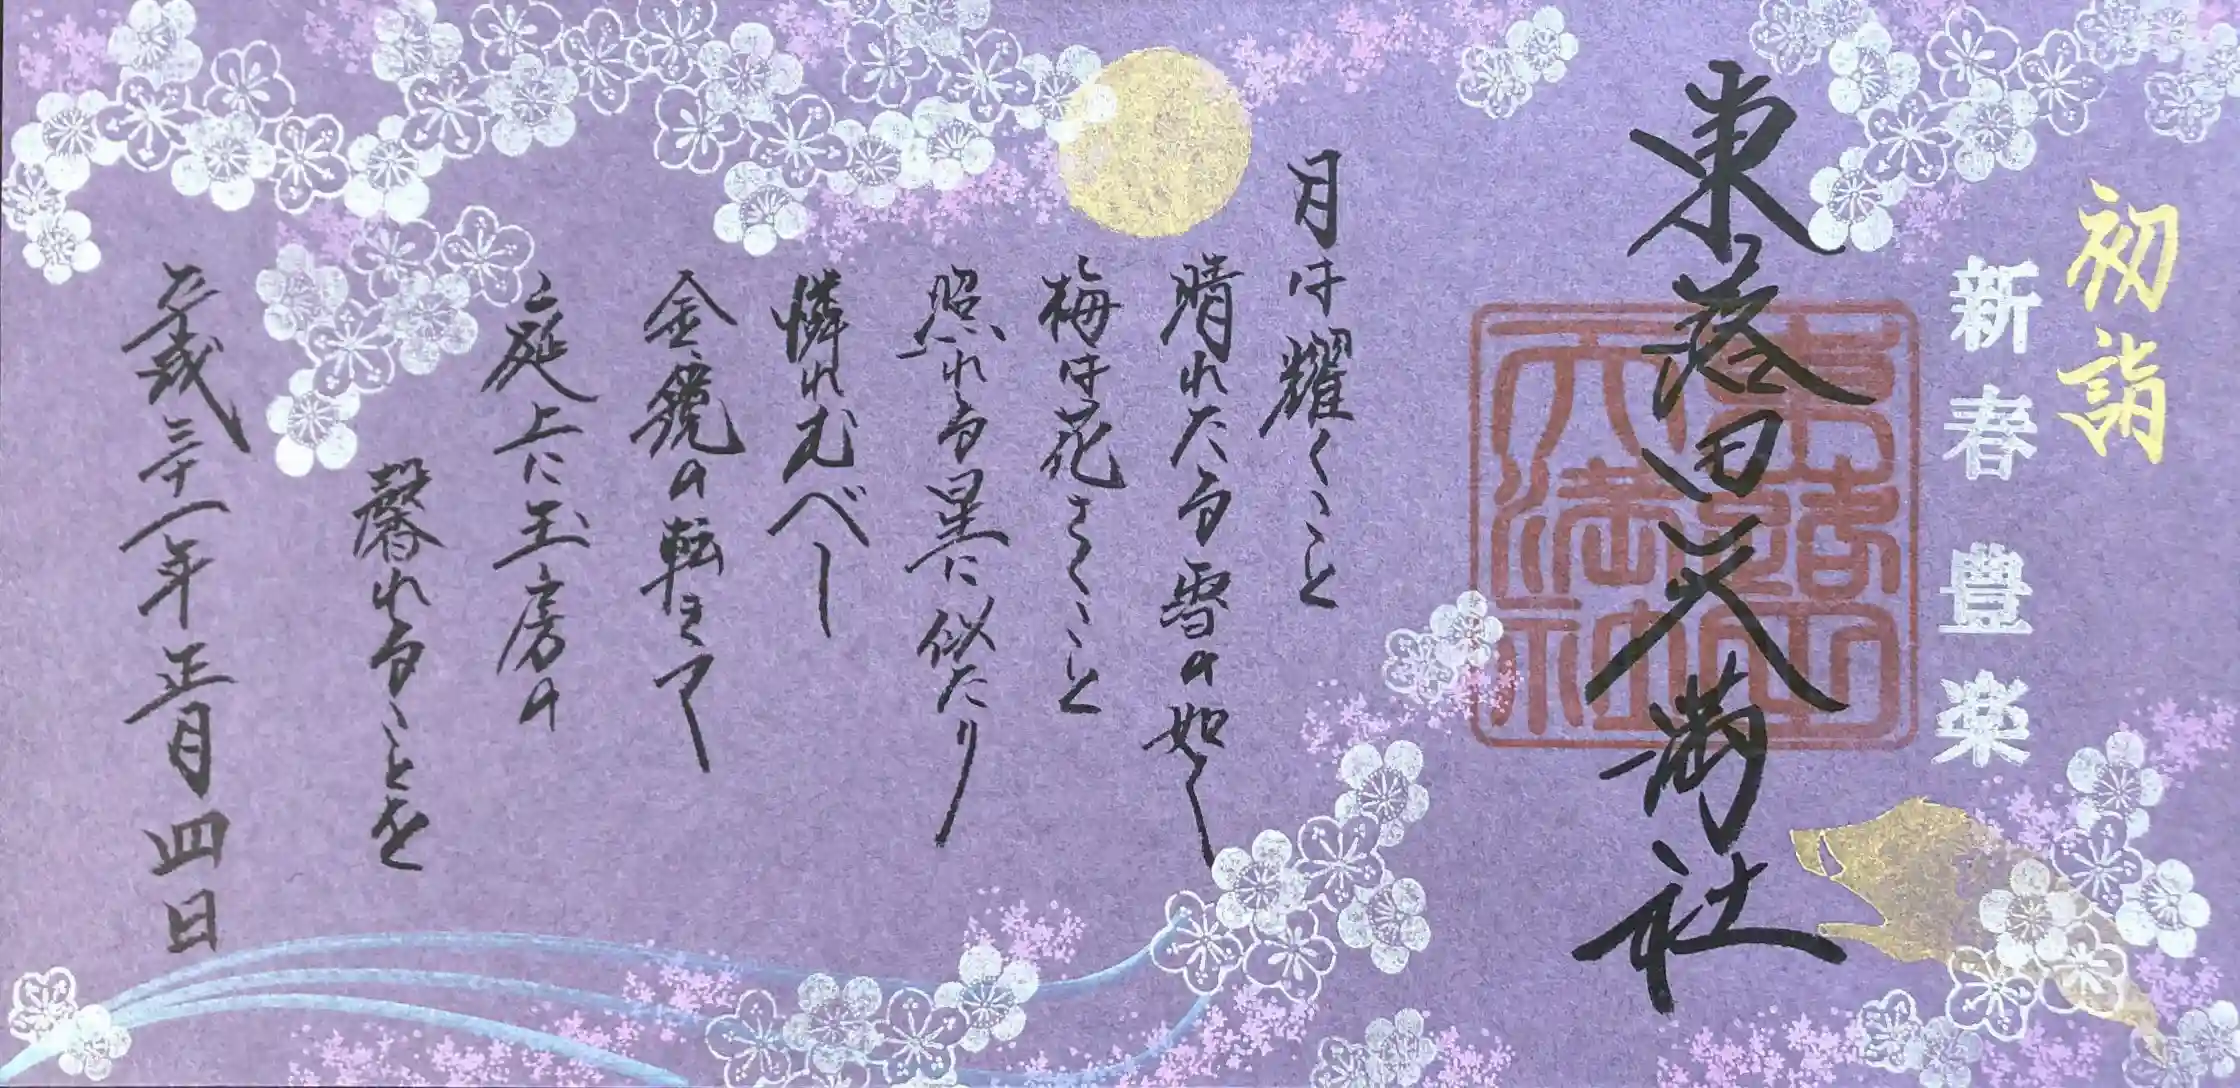 初詣
新春豊楽
東蕗田天満社
月は耀くこと
晴れたる雪の如し
梅は花さくこと
照れる星に似たり
憐れむべし
金鏡の転きて
庭上に玉房の
馨れることを
平成三十一年正月四日
東蕗田天満社